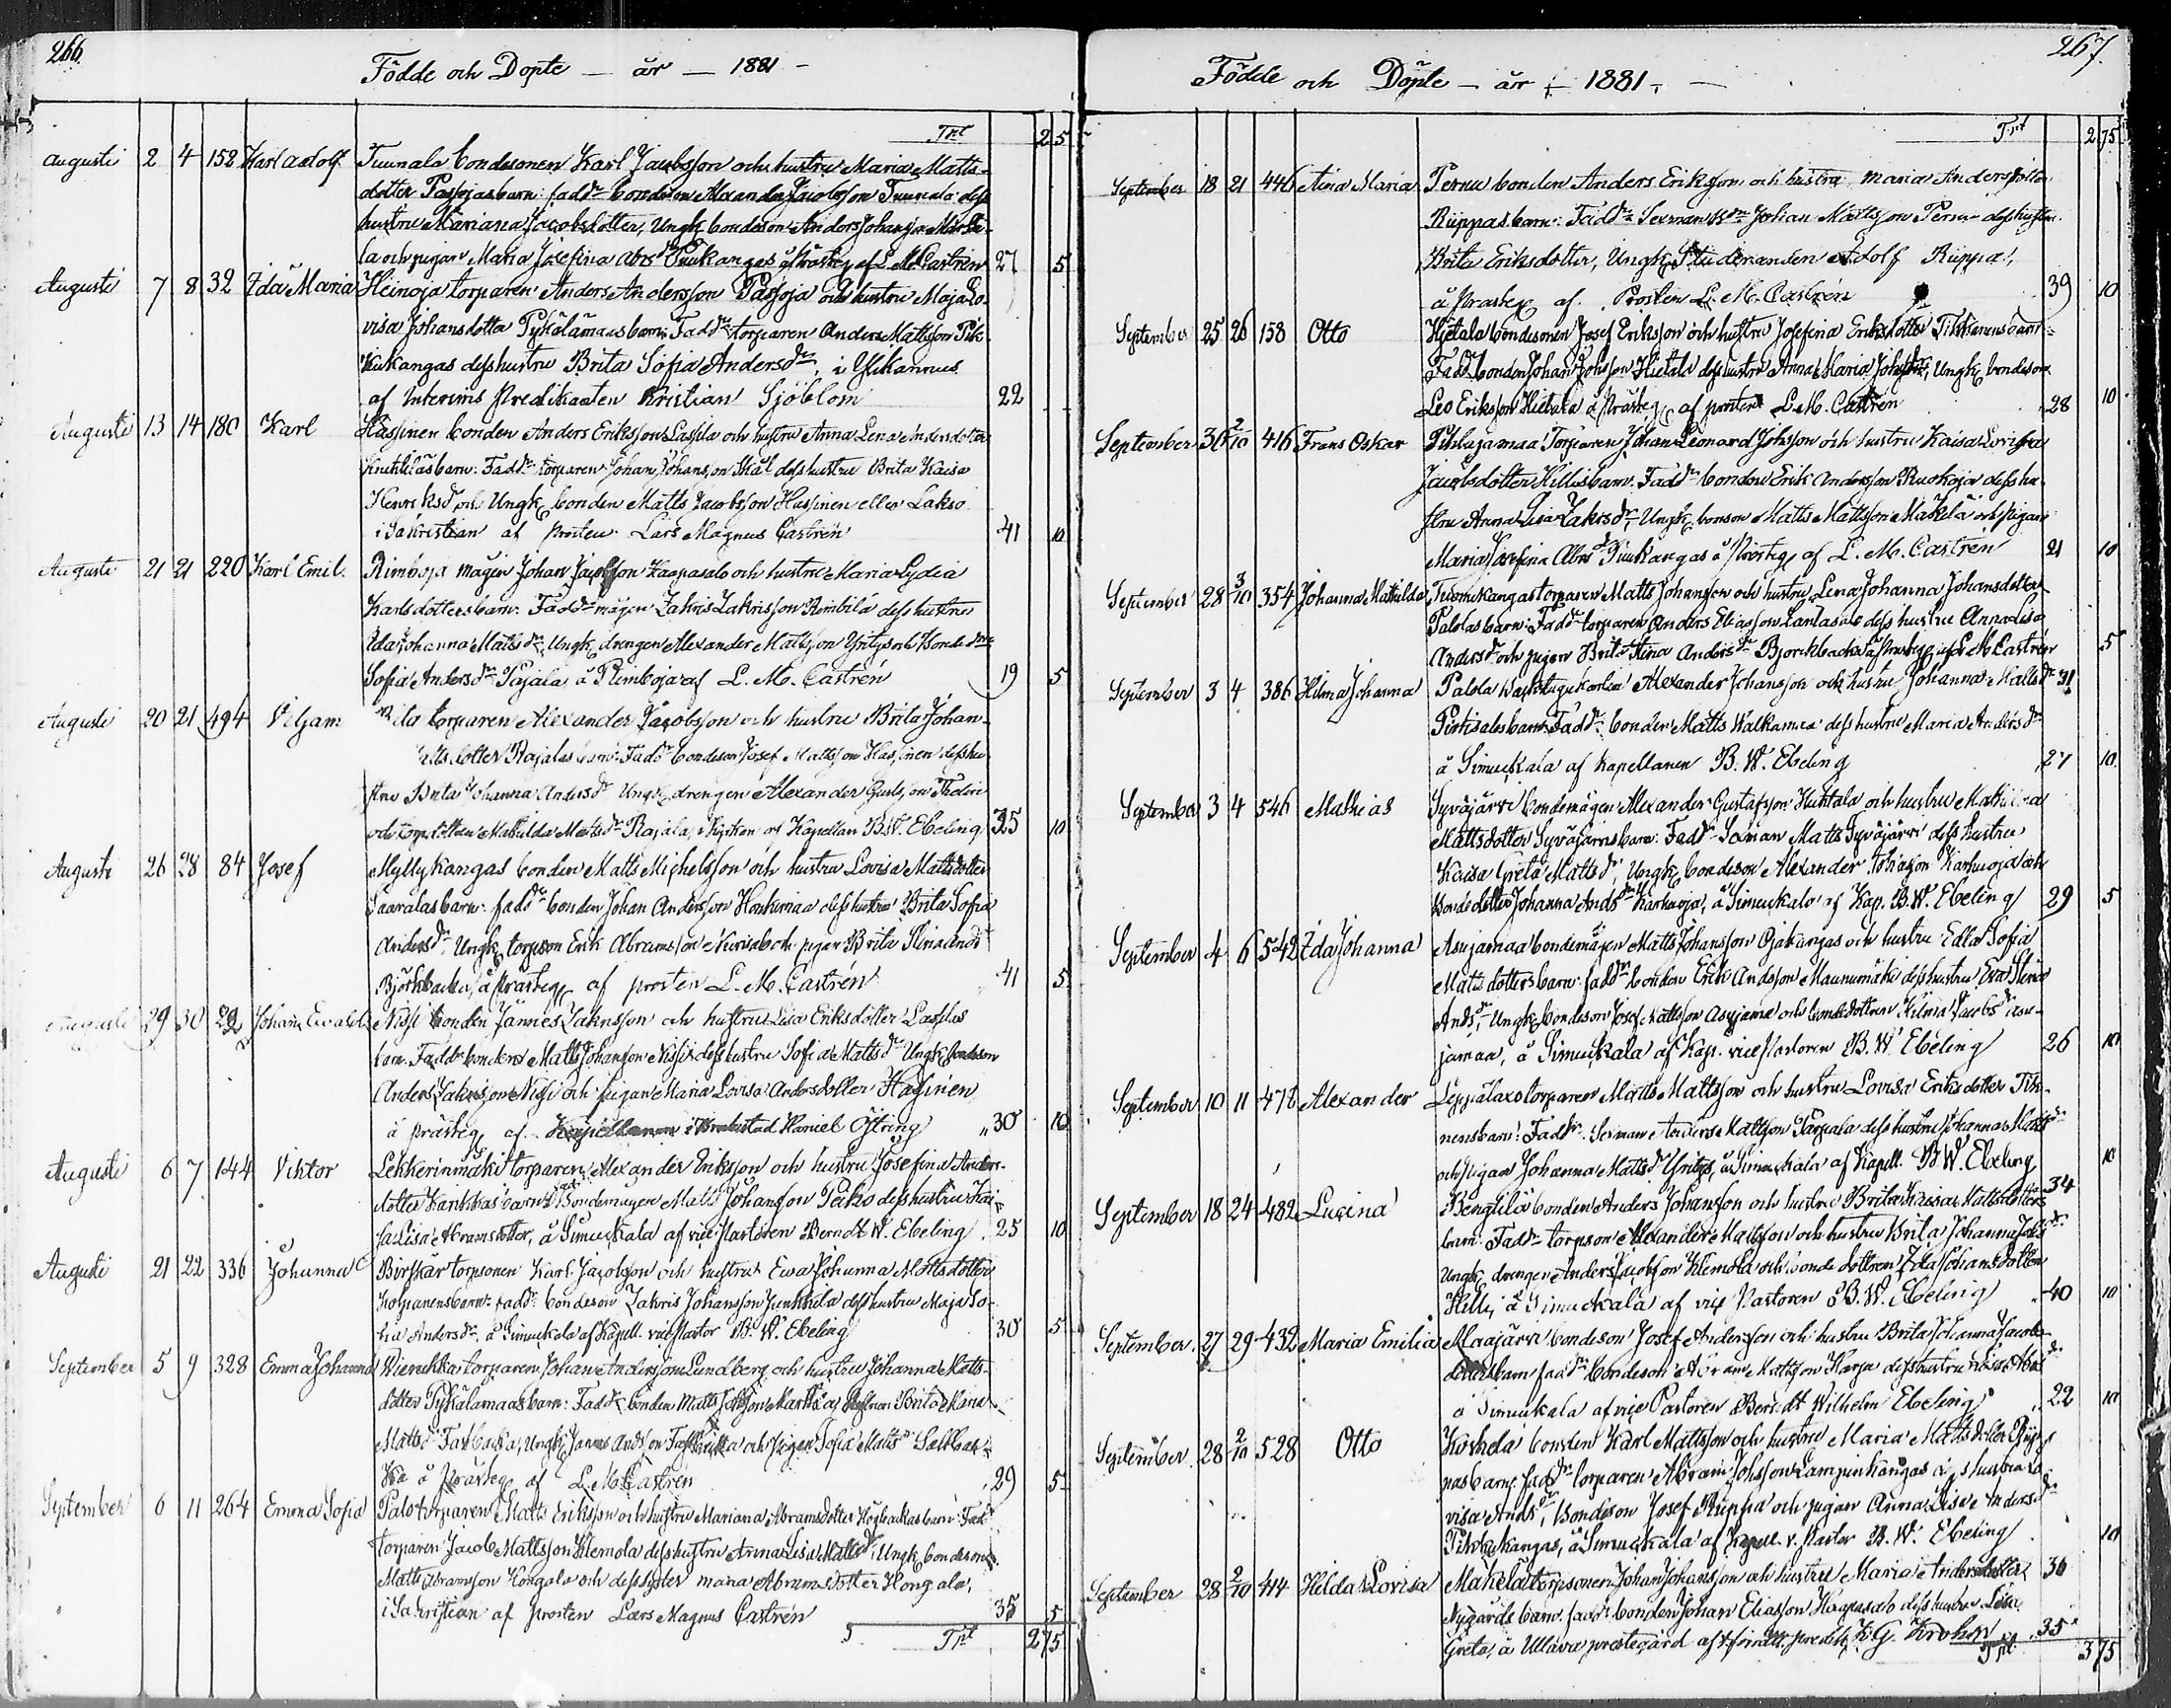 266.
Födde och Döpte — år — 1881 —
Trt 2 5
Augusti 2 4 152 Karl Adolf Tunnala bondesonen Karl Jacobsson och hustru Maria Matts-
dotter Passojas barn: fadd. bondeson Alexander Jacobsson Tunnala dess
hustru Mariana Jacobsdotter, Ungk bondeson Anders Johansson
la och pigan Maria Josefina Abrsdr å Prästeg af L. M. Castrén 27 5
Augusti 7 8 32 Ida Maria Heinoja torparen Anders Andersson Passoja och hustru Maja Lo-
visa Johansdotter Pykälämaas barn: Fadd. torparen Anders Mattsson
kukangas dess hustru Brita Sofia Andersdr, i Ylikannus
af Interims Predikanten Kristian Sjöblom 22
Augusti 13 14 180 Karl Hassinen bonden Anders Eriksson Lassila och hustru Anna Lena Andersdotter
barn: Fadd. torparen Johan Johansson dess hustru Brita Kaisa
Henriksdr och Ungk bonden Matts Jacobsson Hassinen eller Lakso
i Sakristian af prosten Lars Magnus Castrén 41 10
Augusti 21 21 220 Karl Emil. Rimboja mågen Johan Jacobsson Haapasalo och hustru Maria Lydia
Karlsdotters barn: Fadd. mågen Zakris Zakrisson Rimbilä dess hustru
Ida Johanna Mattsdr, Ungk drengen Alexander Mattsson Yritys och Bondedr
Sofia Andersdr Pajala å Rimboja af L. M. Castrén 19 5
Augusti 20 21 494 Viljam torparen Alexander Jacobsson och hustru Brita Johan-
dotter Rajalas barn: Fadd. bondeson Josef Mattsson Hassinen dess hu-
stru Brita Johanna Andersdr Ungk drengen Alexander
och torpdottern Matilda Mattsdr Rajala, i Kyrkan af Kapellan B. W. Ebeling 35 10
Augusti 26 28 84 Josef Myllykangas bonden Matts Michelsson och hustru Lovisa Mattsdotter
Saaralas barn: fadd. bonden Johan Andersson Honkimaa dess hustru Brita Sofia
Andersdr Ungk torpson Erik Abramsson och pigan Brita Stina Andr
Björkbacka, å prästeg af prosten L. M. Castrén 41 5
Augusti 29 30 292 Johan Evald Nissi bonden Jannes Zakrisson och hustru Lisa Eriksdotter Lassilas
barn. Fadd. bonden Matts Johansson Nissi dess hustru Sofia Mattsdr Ungk bondeson
Anders Zakrisson Nissi och pigan Maria Lovisa Andersdotter Hassinen
å prästeg af Kapellanen i Brahestad Daniel Östring 30 10
Augusti 6 7 144 Viktor Lekkerinmäki torparen Alexander Eriksson och hustru Josefina Anders-
dotter barn. Bondemågen Matts Johansson Peko dess hustru Kai-
sa Lisa Abramsdotter, å Simuckala af vice Pastoren Berndt W. Ebeling 25 10
Augusti 21 22 336 Johanna Birskär torpsonen Karl Jacobsson och hustru Eva Johanna Mattsdotter
barn: fadd. bondeson Zakris Johansson Junkkila dess hustru Maja So-
fia Andersdr, å Simuckala af Kapell. vice Pastor B. W. Ebeling 30 5
September 5 9 328 Emma Johanna torparen Johan Andersson Lundberg och hustru Johanna Matts-
dotter Pykälämaas barn: Fadd. bonden Matts
Mattsdr Ungk Jannes Andsson och pigan Sofia Mattsdr
ka å Prästeg af L. M. Castrén 29 5
September 6 11 264 Emma Sofia Palo torparen Matts Eriksson och hustru Mariana Abramsdotter Högbackas barn: Fadd
torparen Jacob Mattsson Klemola dess hustru Anna Lisa Mattsdr, Ungk bondeson
Matts Abramsson Hongala och dess syster Maria Abramsdotter Hongala,
i Sakristian af prosten Lars Magnus Castrén 35 5
Trt 2 75
267.
Födde och Döpte — år — 1881 —
Trt 2 75
September 18 21 446 Aina Maria Pernu bonden Anders Eriksson och hustru Maria Andersdotter
Ruppas barn: Fadd. Sexman Johan Mattsson Pernu dess hustru
Brita Eriksdotter, Ungk Studeranden Adolf Ruppa,
å Prästeg af Prosten L. M. Castrén 39 10
September 25 26 158 Otto Hietala bondesonen Josef Eriksson och hustru Josefina Eriksdotter barn:
Fadd. bonden Johan Johsson Hietala dess hustru Anna Maria, Ungk bondeson
Leo Eriksson Hietala å Prästeg af prosten L. M. Castrén 28 10
September 30 2/10 416 Frans Oskar Pihlajamaa Torparen Johan Leonard Johsson och hustru Kaisa Lovisa
Jacobsdotter Hillis barn. Fadd. bonden Erik Andersson Ruokoja dess hu-
stru Anna Lisa Zakrsdr, Ungk bonson Matts Mattsson Mäkilä och pigan
Maria Josefina Abrsdr å Prästeg af L. M. Castrén 21 10
September 28 3/10 354 Johanna Matilda Tuomikangas torparen Matts Johansson och hustru Lena Johanna Johansdotter
Palolas barn: Fadd. torparen Anders Eliasson Lantasalo dess hustru Anna Lisa
Andersdr och pigan Brita Stina Andersdr Björkbacka å Prästeg af L. M. Castrén 5
September 3 4 386 Hilma Johanna Palola Alexander Johansson och hustru Johanna Mattsdr 31
barn. Fadd. bonden Matts Walkamaa dess hustru Maria Andersdr
å Simuckala af Kapellanen B. W. Ebeling 27 10
September 3 4 546 Mathias Syväjärvi bondemågen Alexander Gustafsson Huhtala och hustru Matilda
Mattsdotter Syväjärvis barn: Fadd. Sexman Matts Syväjärvi dess hustru
Kaisa Greta Mattsdr, Ungk bondeson Alexander Johansson Karhuoja och
Bondedotter Johanna Andsdr Karhuoja, å Simuckala af Kap. B. W. Ebeling 29 5
September 4 6 542 Ida Johanna Asujamaa bondemågen Matts Johansson Ojakangas och hustru Edla Sofia
Mattsdotters barn: fadd. bonden Erik Andsson Maunumäki dess hustru Eva Stina
Andsdr, Ungk bondeson Josef Mattsson Asujamaa och bondedottren Hilma Jacobsdr Asu-
jamaa, å Simuckala af Kap. vice Pastoren B. W. Ebeling 26 10
September 10 11 478 Alexander Leppälaxo torparen Matts Mattsson och hustru Lovisa Eriksdotter
nens barn: Fadd. Sexman Anders Mattsson Parpala dess hustru Johanna Mattsdr
och pigan Johanna Mattsdr Yritys, å Simuckala af Kapell. B. W. Ebeling 10
September 18 24 482 Lucina Bengtilä bonden Anders Johansson och hustru Brita Kaisa Mattsdotters 34
barn: Fadd. torpson Alexander Mattsson och hustru Brita Johanna
Ungk drengen Anders Jacobsson Klemola och bondedottren Ida Johansdotter
Hilli, å Simuckala af vice Pastoren B. W. Ebeling 40 10
September 27 29 432 Maria Emilia Maajärvi bondeson Josef Andersson och hustru Brita Johanna Jacobs-
dotters barn fadd. bondeson Abram Mattsson Harja dess hustru
å Simuckala af vice Pastoren Berndt Wilhelm Ebeling 22 10
September 28 2/10 528 Otto Koskela bonden Karl Mattsson och hustru Maria Mattsdotter Rüp-
pas barn: fadd. torparen Abram Johsson Lampinkangas dess hustru Lo-
visa Andsdr, Bondeson Josef Ruppa och pigan Anna Lisa Andersdr
kangas, å Simuckala af Kapell. v. Pastor B. W. Ebeling 10
September 28 2/10 414 Hilda Lovisa Mäkelä torpsonen Johan Johansson och hustru Maria Andersdotter 36
Nygårds barn. fadd. bonden Johan Eliasson Haapasalo dess hustru Lisa
Greta, å Ullava prestegård af predik. K. G. Krohn 35
Trt 3 75